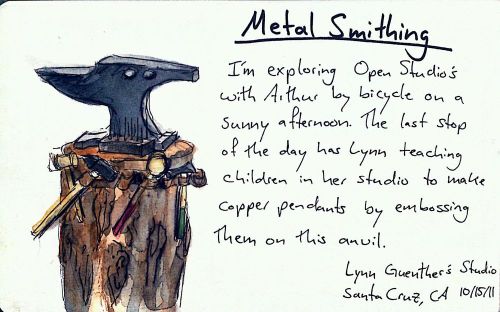 Metal Smithing
I'm exploring Open Studio's
with Arthur by bicycle on a
sunny afternoon. The last stop
of the day has Lynn teaching
children in her studio to make
copper pendants by embossing
them on this anvil.
Lynn Guenther's Studio
Santa Cruz, CA 10/15/11